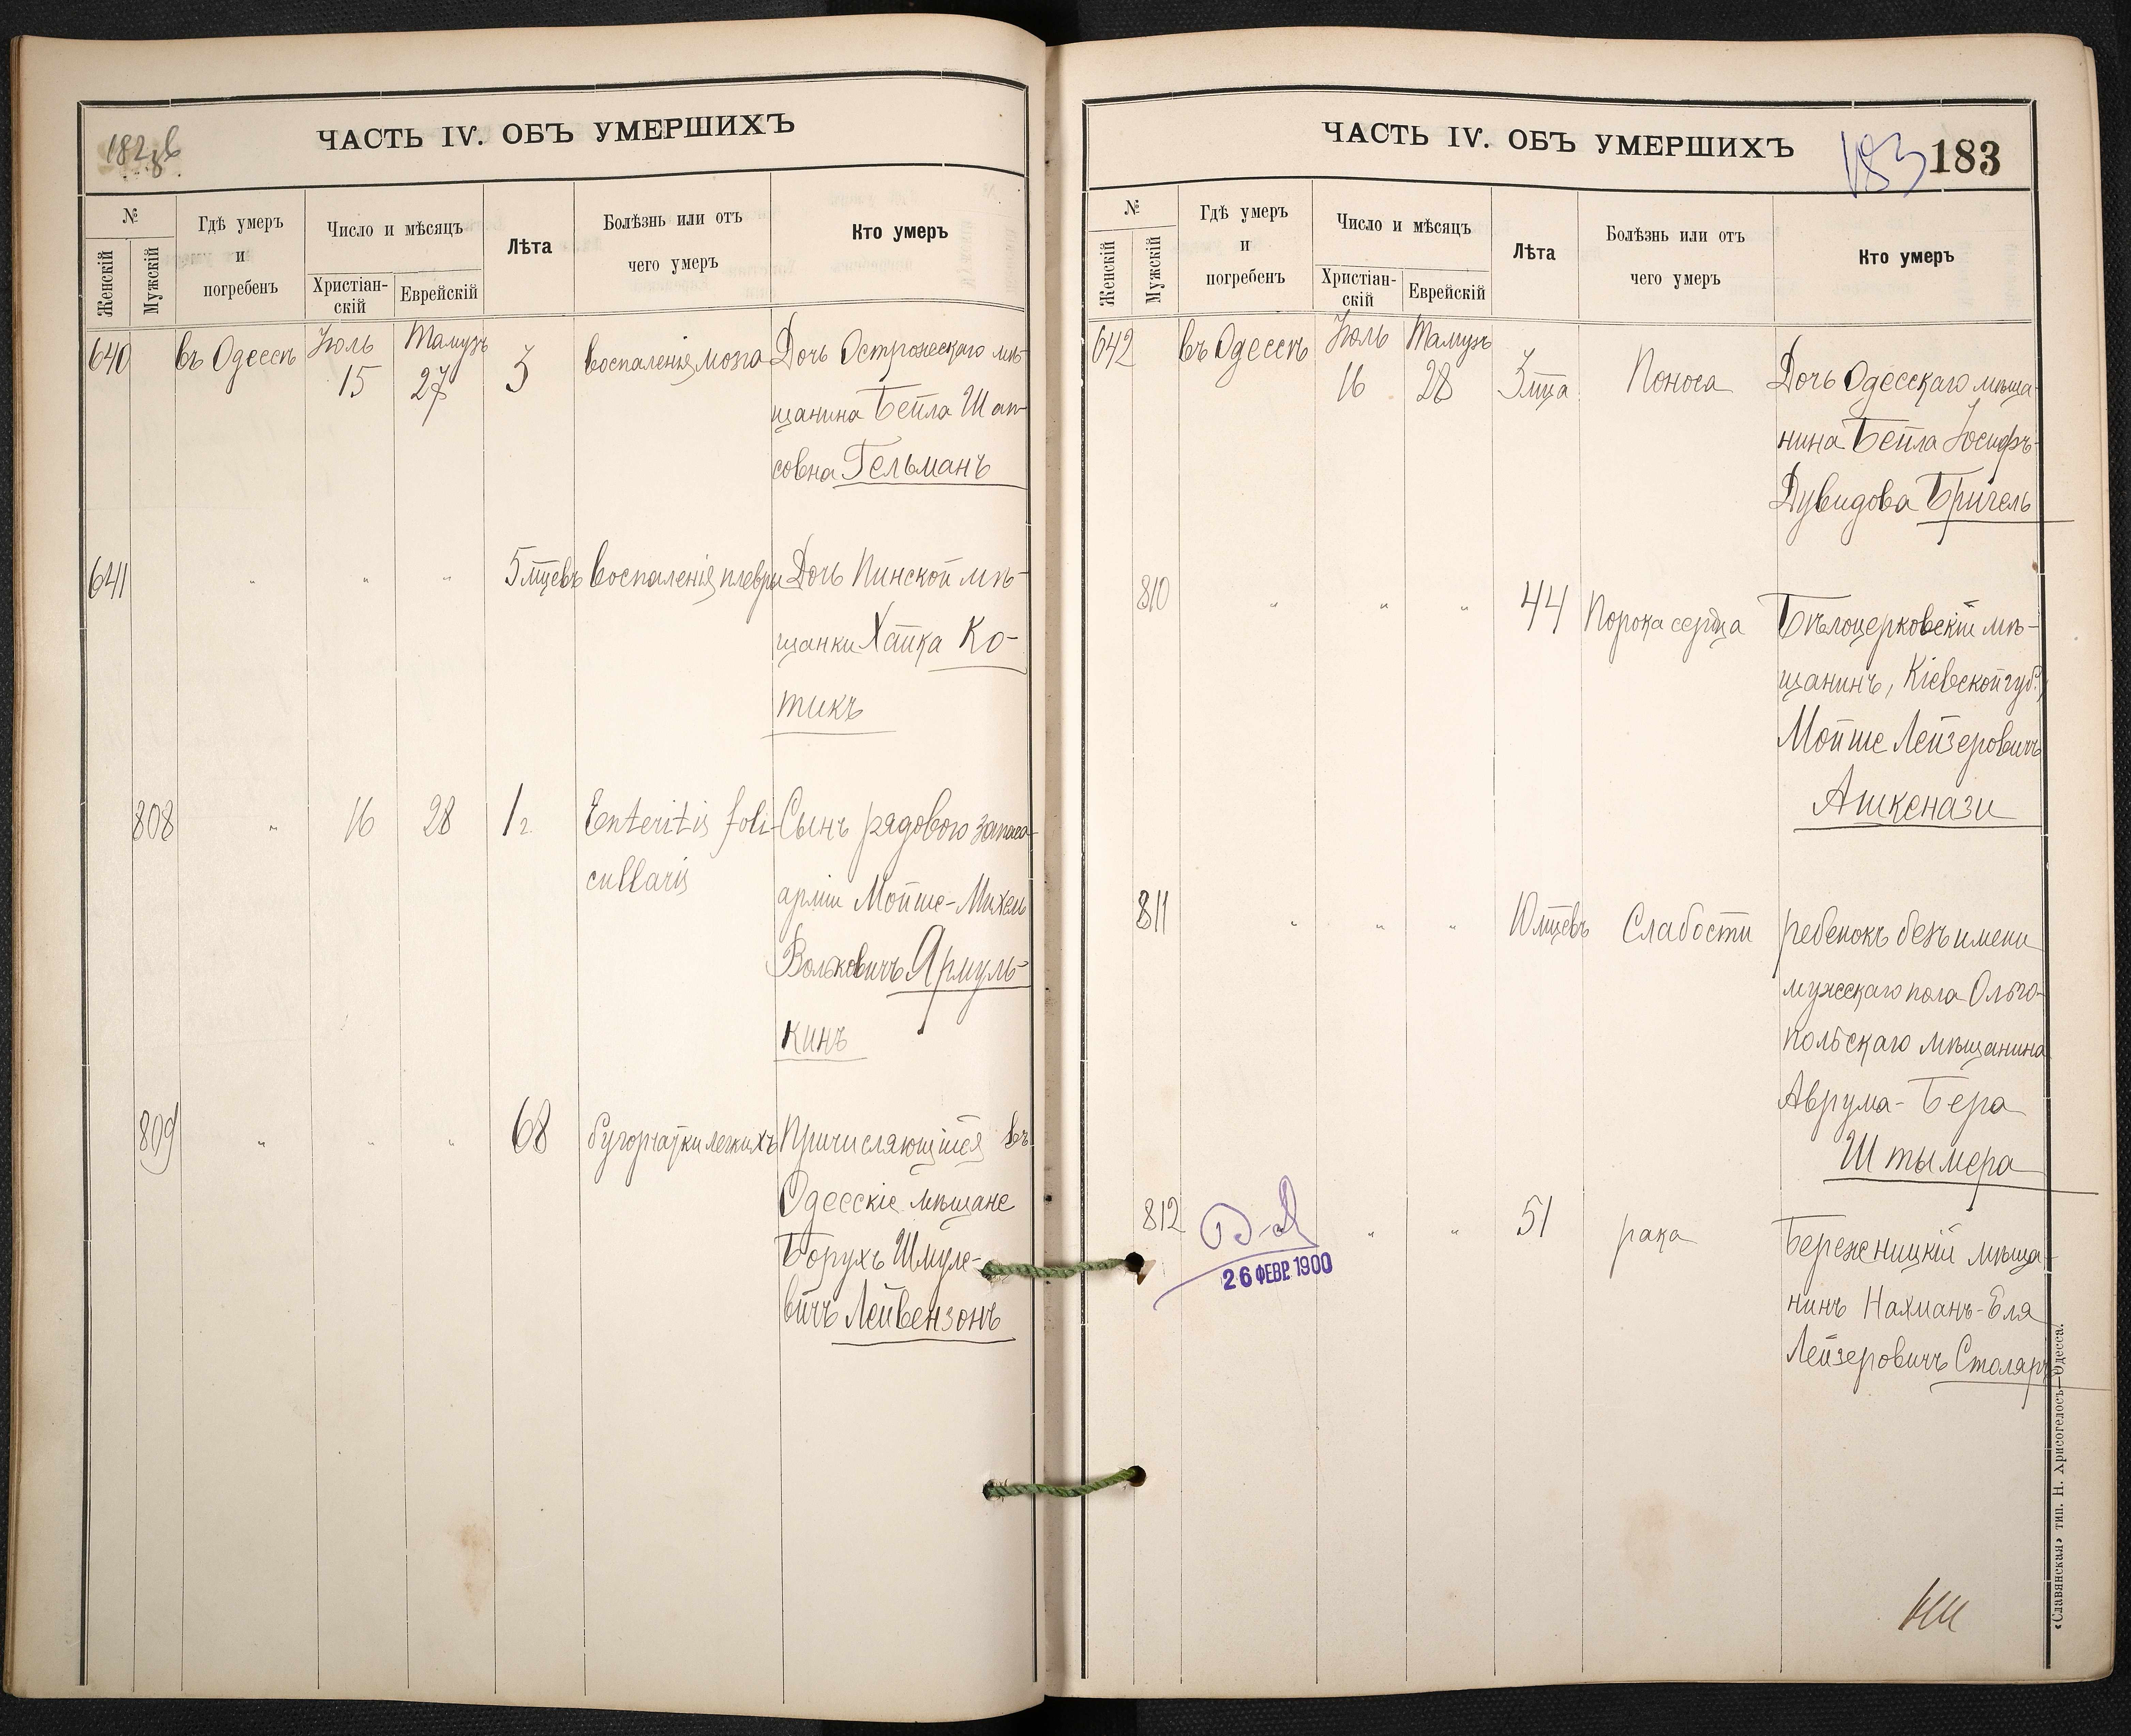 182 об
ЧАСТЬ IV. ОБЪ УМЕРШИХЪ
№
Женскій
Мужскій
Гдѣ умеръ
и
погребенъ
Число и мѣсяцъ
Христіан-
скій
Еврейскій
Лѣта
Болѣзнь или отъ
чего умеръ
Кто умеръ
640 въ Одессѣ Іюль Тамузъ
15 27 3 воспаленія мозга Дочь Острожскаго мѣ-
щанина Бейла Шап-
совна Гельманъ
641 " " " 5 мцевъ воспаленія плевры Дочь Пинской мѣ-
щанки Хайка Ко-
тикъ
808 " 16 28 1 г. Enteritis foli- Сынъ рядового запаса
cullaris
арміи Мойше-Михель
Вольковичъ Ярмуль-
кинъ
809 " " " 68 бугорчатки легкихъ Причисляющійся въ
Одесскіе мѣщане
Борухъ Шмуле-
вичъ Лейвензонъ
ЧАСТЬ IV. ОБЪ УМЕРШИХЪ
183 183
№
Женскій
Мужскій
Гдѣ умеръ
и
погребенъ
Число и мѣсяцъ
Христіан-
скій
Еврейскій
Лѣта
Болѣзнь или отъ
чего умеръ
Кто умеръ
642 въ Одессѣ Іюль Тамузъ
16 28 3 мца Поноса Дочь Одесскаго мѣща-
нина Бейла Іосифъ-
Дувидова Бригель
810 " " " 44 Порока сердца Бѣлоцерковскій мѣ-
щанинъ, Кіевской губ.,
Мойше Лейзеровичъ
Ашкенази
811 " " " 10 мцевъ Слабости ребенокъ безъ имени
мужескаго пола Ольго-
польскаго мѣщанина
Аврума-Бера
Штымера
812 " " 51 рака Бережницкій мѣща-
нинъ Нахманъ-Еля
Лейзеровичъ Столяръ
26 ФЕВР. 1900
«Славянская» тип. Н. Хрисогелосъ—Одесса.